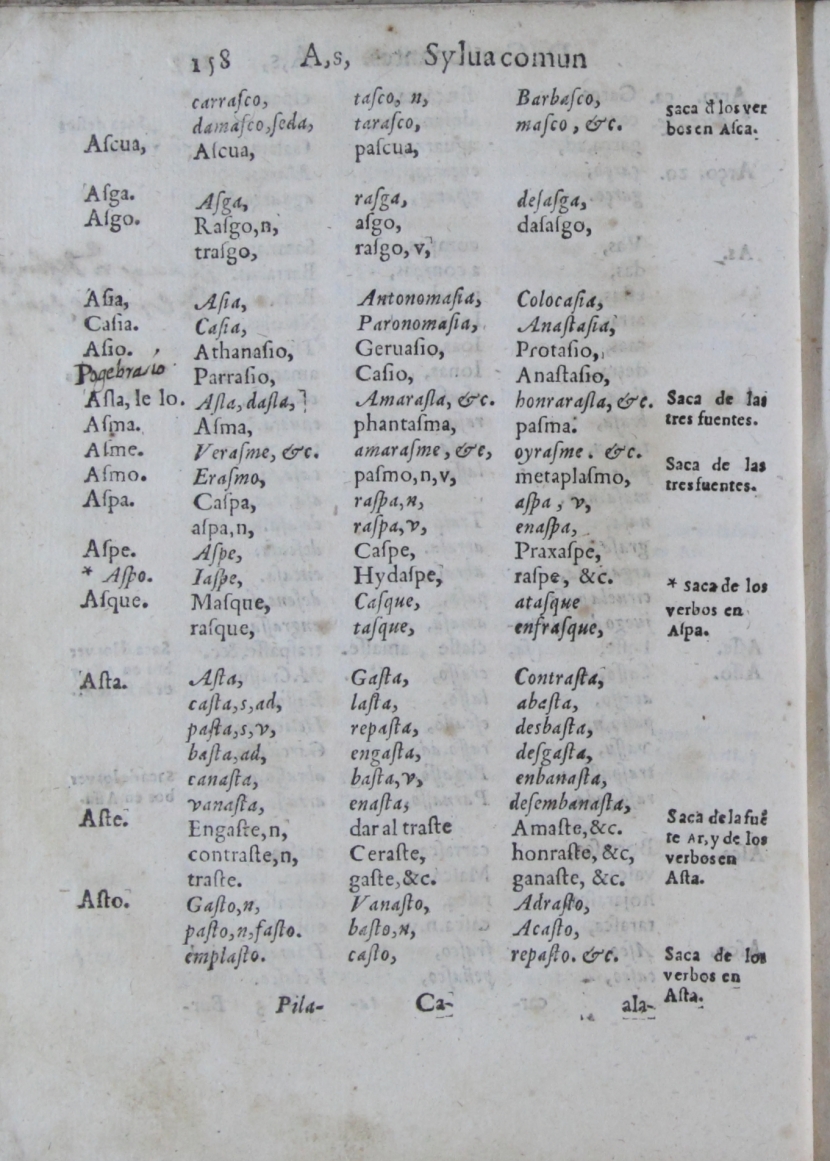 158 A,s, Sylua comun
carraſco, taſco, n, Barbaſco, ſaca đ los ver
damaſco,ſeda, taraſco, maſco, &c. bos en Aſca.
Aſcua, Aſcua, paſcua,
Aſga. Aſga, raſga, deſaſga,
Aſgo. Raſgo,n, aſgo, daſaſgo,
traſgo, raſgo, v,
Aſia, Aſia, Antonomaſia, Colocaſia,
Caſia. Caſia, Paronomaſia, Anaſtaſia,
Aſio. Athanaſio, Geruaſio, Protaſio,
Pogebrasio Parraſio, Caſio, Anaſtaſio,
Aſla, le lo. Aſla, daſla, Amaraſla, &c. honraraſla, &c. Saca de las
tres fuentes.
Aſma. Aſma, phantaſma, paſma.
Aſme. Veraſme, &c. amaraſme, &c, oyraſme. &c. Saca de las
Aſmo. Eraſmo, paſmo,n,v, metaplaſmo, tres fuentes.
Aſpa. Caſpa, raſpa,n, aſpa, v,
aſpa,n, raſpa,v, enaſpa,
Aſpe. Aſpe, Caſpe, Praxaſpe,
* Aſpo. Iaſpe, Hydaſpe, raſpe, &c. * saca de los
Aſque. Maſque, Caſque, ataſque verbos en
raſque, taſque, enfraſque, Aſpa.
Aſta. Aſta, Gaſta, Contraſta,
caſta,s,ad, laſta, abaſta,
paſta,s,v, repaſta, desbaſta,
baſta,ad, engaſta, deſgaſta,
canaſta, baſta,v, enbanaſta,
vanaſta, enaſta, deſembanaſta,
Aſte. Engaſte,n, dar al traſte Amaſte,&c. Saca de la fuẽ
te Ar, y de los
contraſte,n, Ceraſte, honraſte, &c, verbos en
traſte. gaſte,&c. ganaſte, &c. Aſta.
Aſto. Gaſto,n, Vanaſto, Adraſto,
paſto,n,faſto. baſto,n, Acaſto,
emplaſto. caſto, repaſto. &c. Saca de los
verbos en
Aſta.
Pila- Ca- ala-